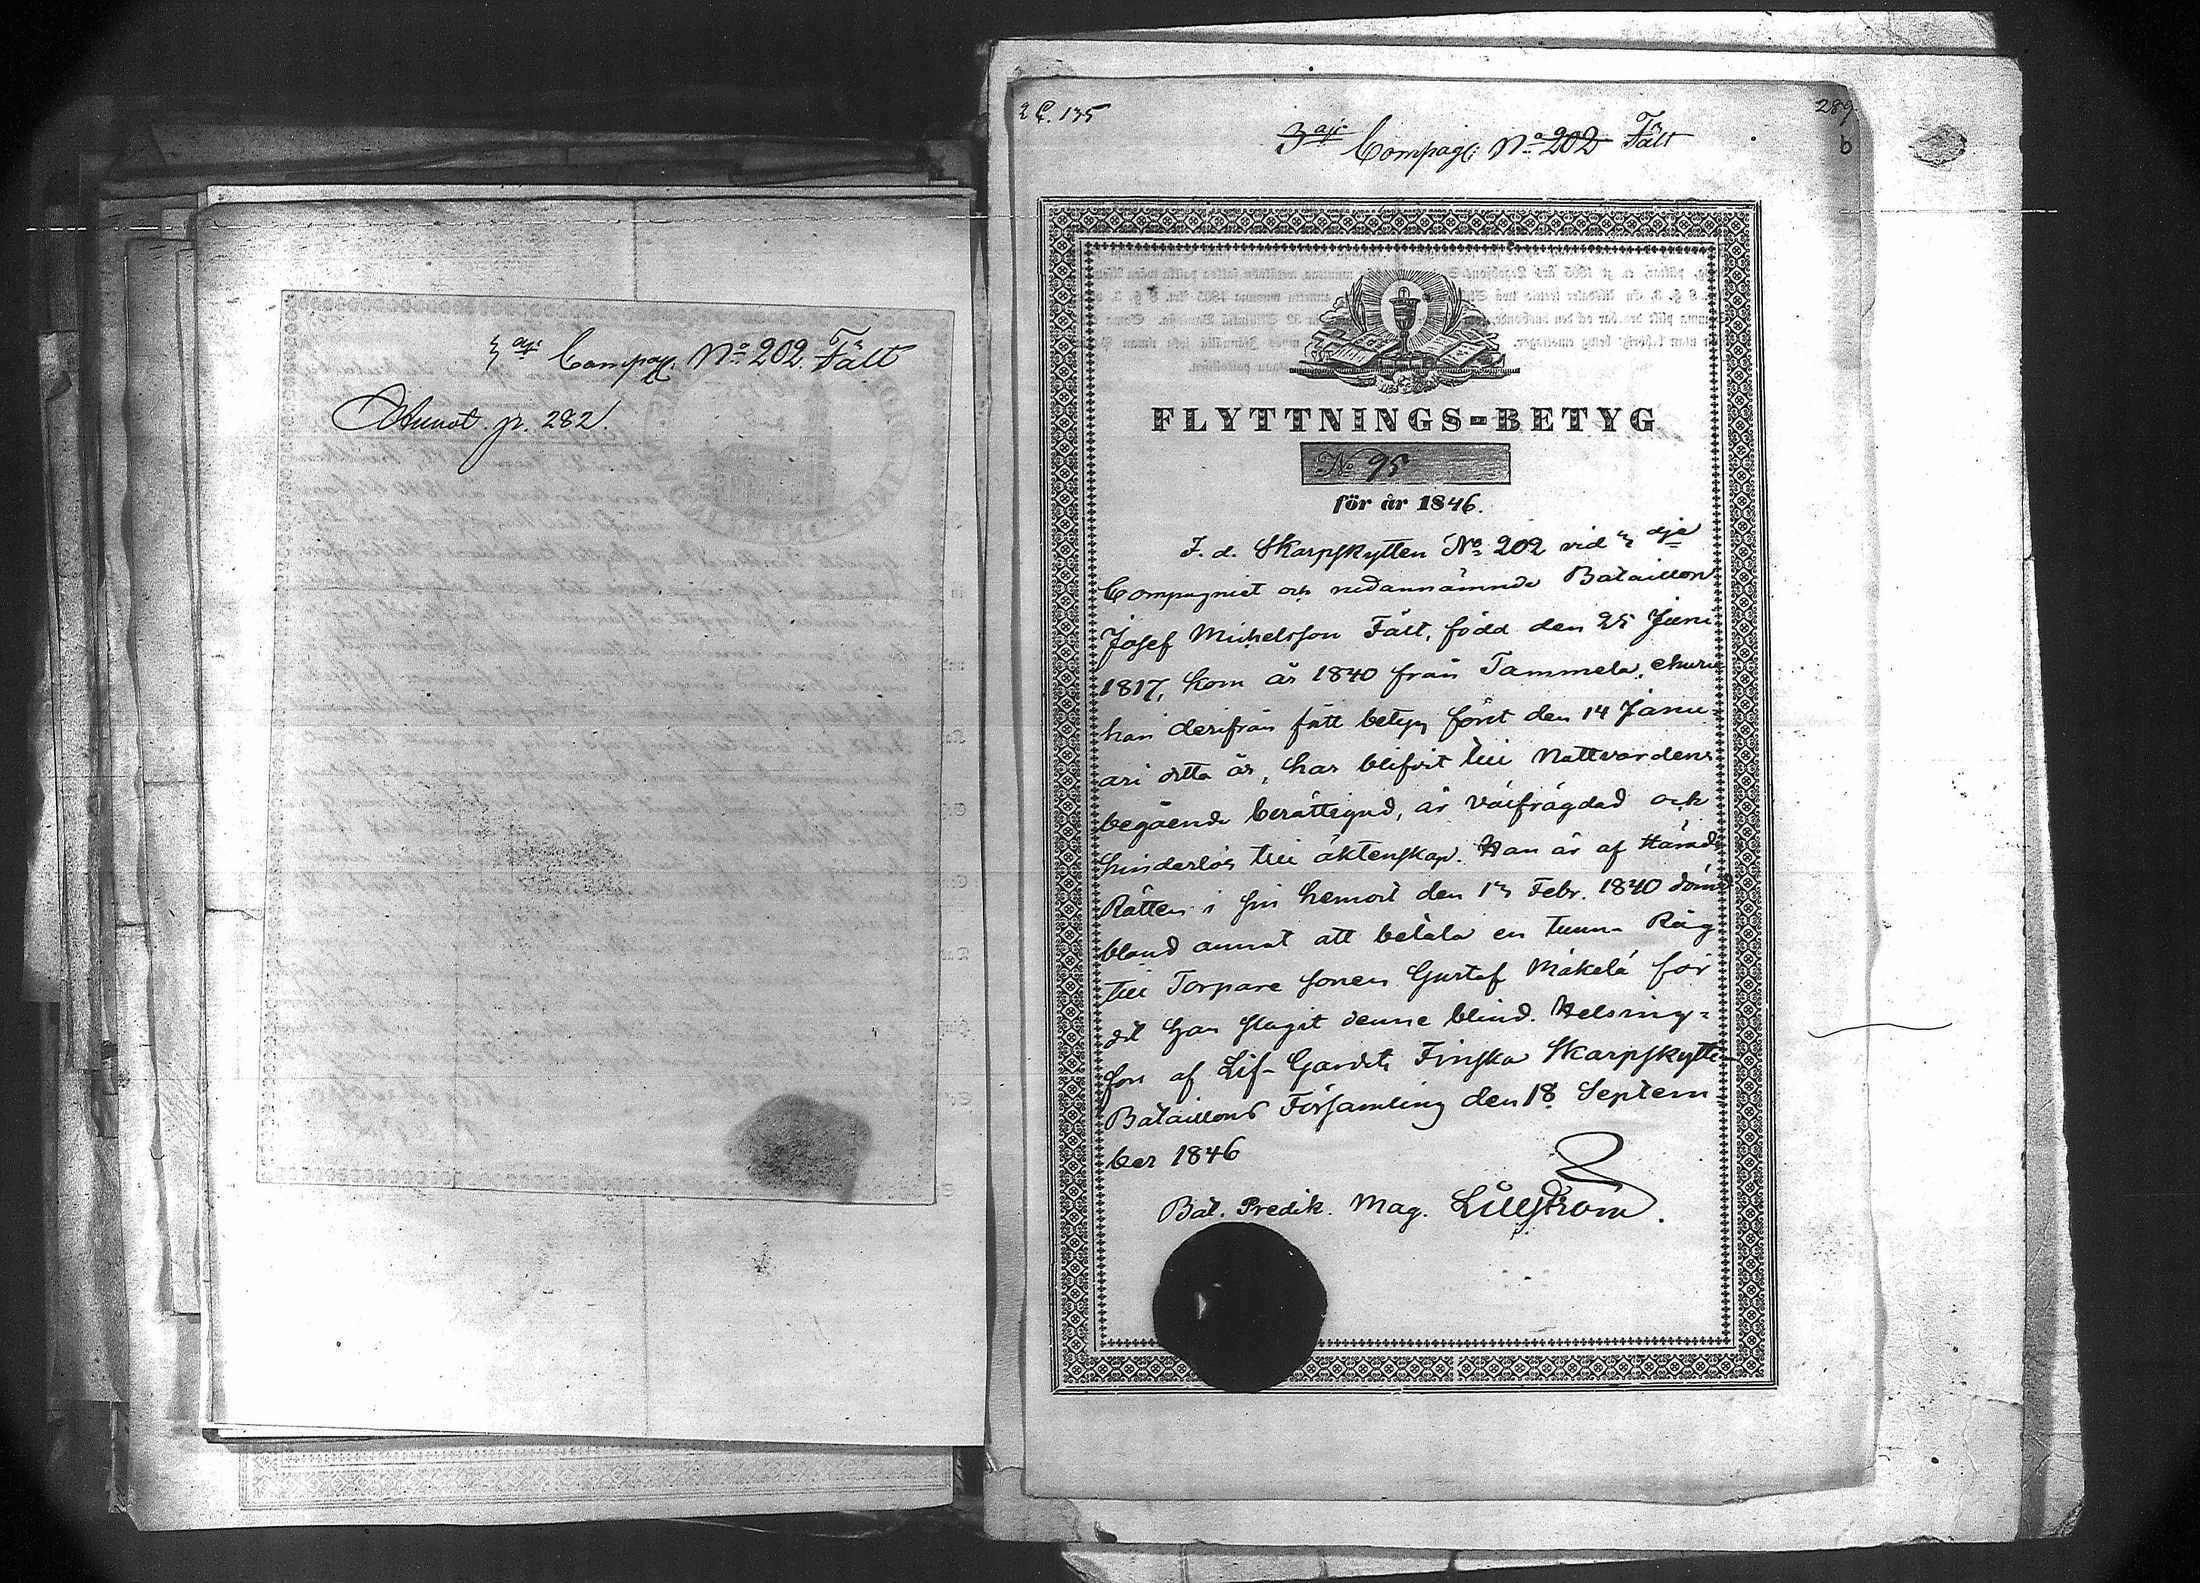 3dje Compag: No 202. Fält
Annot. p. 282.
2 C. 135
289.
b
3dje Compag: No 202 Fält
FLYTTNINGS-BETYG
No 95
för år 1846.
F. d. Skarpskytten No 202 vid 3dje
Compagniet och nedannämnde Bataillon
Josef Michelsson Fält, född den 25 Juni
1817, kom år 1840 från Tammela, ehuru
han derifrån fått betyg först den 14 Janu-
ari detta år, har blifvit till Nattvardens
begående berättigad, är välfrägdad och
hinderlös till äktenskap. Han är af Härads
Rätten i sin hemort den 13 Febr. 1840 dömd
bland annat att betala en tunna Råg
till Torpare sonen Gustaf Mäkelä för
det han slagit denne blind. Helsing=
fors af Lif-Gardets Finska Skarpskytte-
Bataillons Församling den 18 Septem-
ber 1846
Bat. Predik. Mag. Lillström.